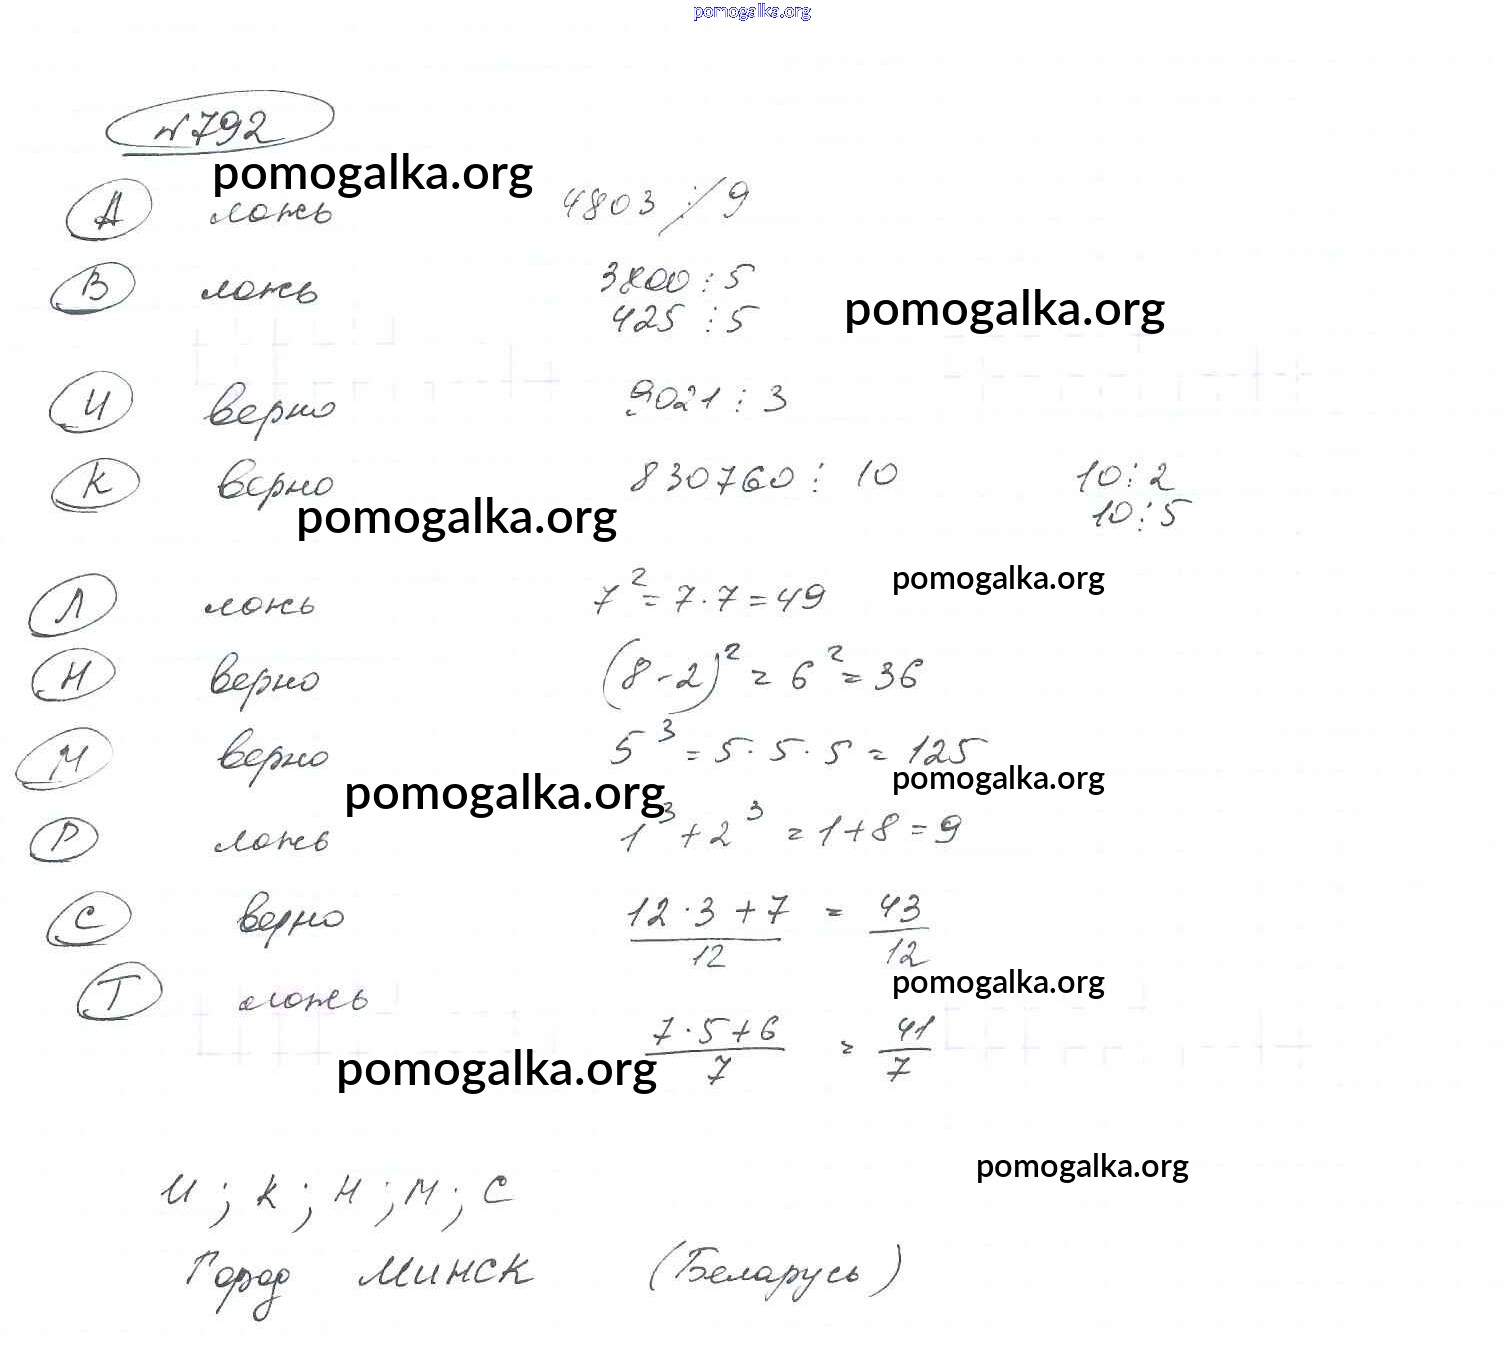 pomogalka.org
№792
pomogalka.org
А ложь 4803 ⋮̸ 9
В ложь 3800 ⋮ 5
425 ⋮ 5
pomogalka.org
И верно 9021 ⋮ 3
К верно 830760 ⋮ 10 10 ⋮ 2
10 ⋮ 5
pomogalka.org
pomogalka.org
Л ложь 7² = 7·7 = 49
Н верно (8-2)² = 6² = 36
М верно 5³ = 5·5·5 = 125
pomogalka.org
pomogalka.org
Р ложь 1³ + 2³ = 1+8 = 9
С верно (12·3+7)/12 = 43/12
pomogalka.org
Т ложь (7·5+6)/7 = 41/7
pomogalka.org
pomogalka.org
И; К; Н; М; С
Город МИНСК (Беларусь)